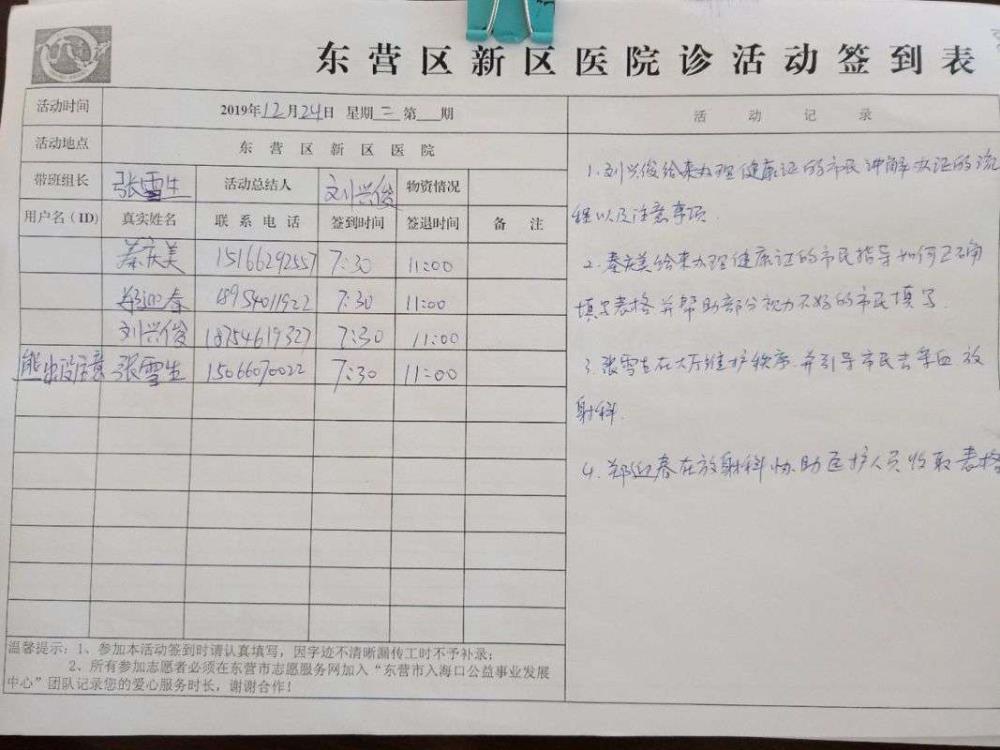 东营区新区医院诊活动签到表
活动时间 2019年12月24日 星期二 第 期 活动记录
活动地点 东营区新区医院
带班组长 张雪生 活动总结人 刘兴俊 物资情况
用户名(ID) 真实姓名 联系电话 签到时间 签退时间 备注
秦庆美 15166292557 7:30 11:00
郑迎春 18954011922 7:30 11:00
刘兴俊 18754619327 7:30 11:00
熊出没注意 张雪生 15066070022 7:30 11:00
1.刘兴俊给来办理健康证的市民讲解办证的流
程以及注意事项.
2.秦庆美给来办理健康证的市民指导如何正确
填写表格并帮助部分视力不好的市民填写.
3.张雪生在大厅维护秩序.并引导市民去采血 放
射科.
4.郑迎春在放射科协助医护人员收取表格
温馨提示:1、参加本活动签到时请认真填写,因字迹不清晰漏传工时不予补录;
2、所有参加志愿者必须在东营市志愿服务网加入“东营市入海口公益事业发展
中心”团队记录您的爱心服务时长,谢谢合作!